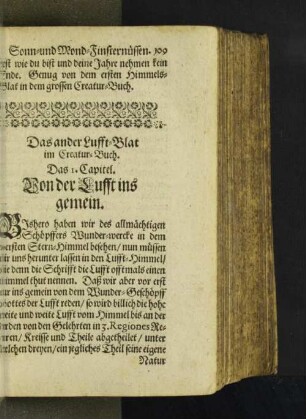 Sonn-und Mond-Finsternüssen. 109
wie du bist und deine Jahre nehmen kein
Ende. Genug von dem ersten Himmels-
Blat in dem grossen Creatur-Buch.
Das ander Lufft-Blat
im Creatur-Buch.
Das 1. Capitel.
Von der Lufft ins
gemein.
BIshero haben wir des allmächtigen
Schöpffers Wunder-wercke in dem
ersten Stern-Himmel besehen/ nun müssen
wir uns herunter lassen in den Lufft-Himmel/
wie denn die Schrifft die Lufft offtmals einen
Himmel thut nennen. Daß wir aber vor erst
nur ins gemein von dem Wunder-Geschöpff
Gottes der Lufft reden/ so wird billich die hohe
weite und weite Lufft vom Himmel bis an der
Erden von den Gelehrten in 3. Regiones Re-
vieren/ Kreisse und Theile abgetheilet/ unter
welchen dreyen/ ein jegliches Theil seine eigene
Natur